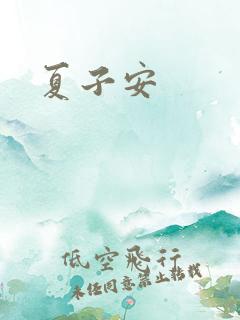 夏子安
低空飛行
未经同意禁止转载